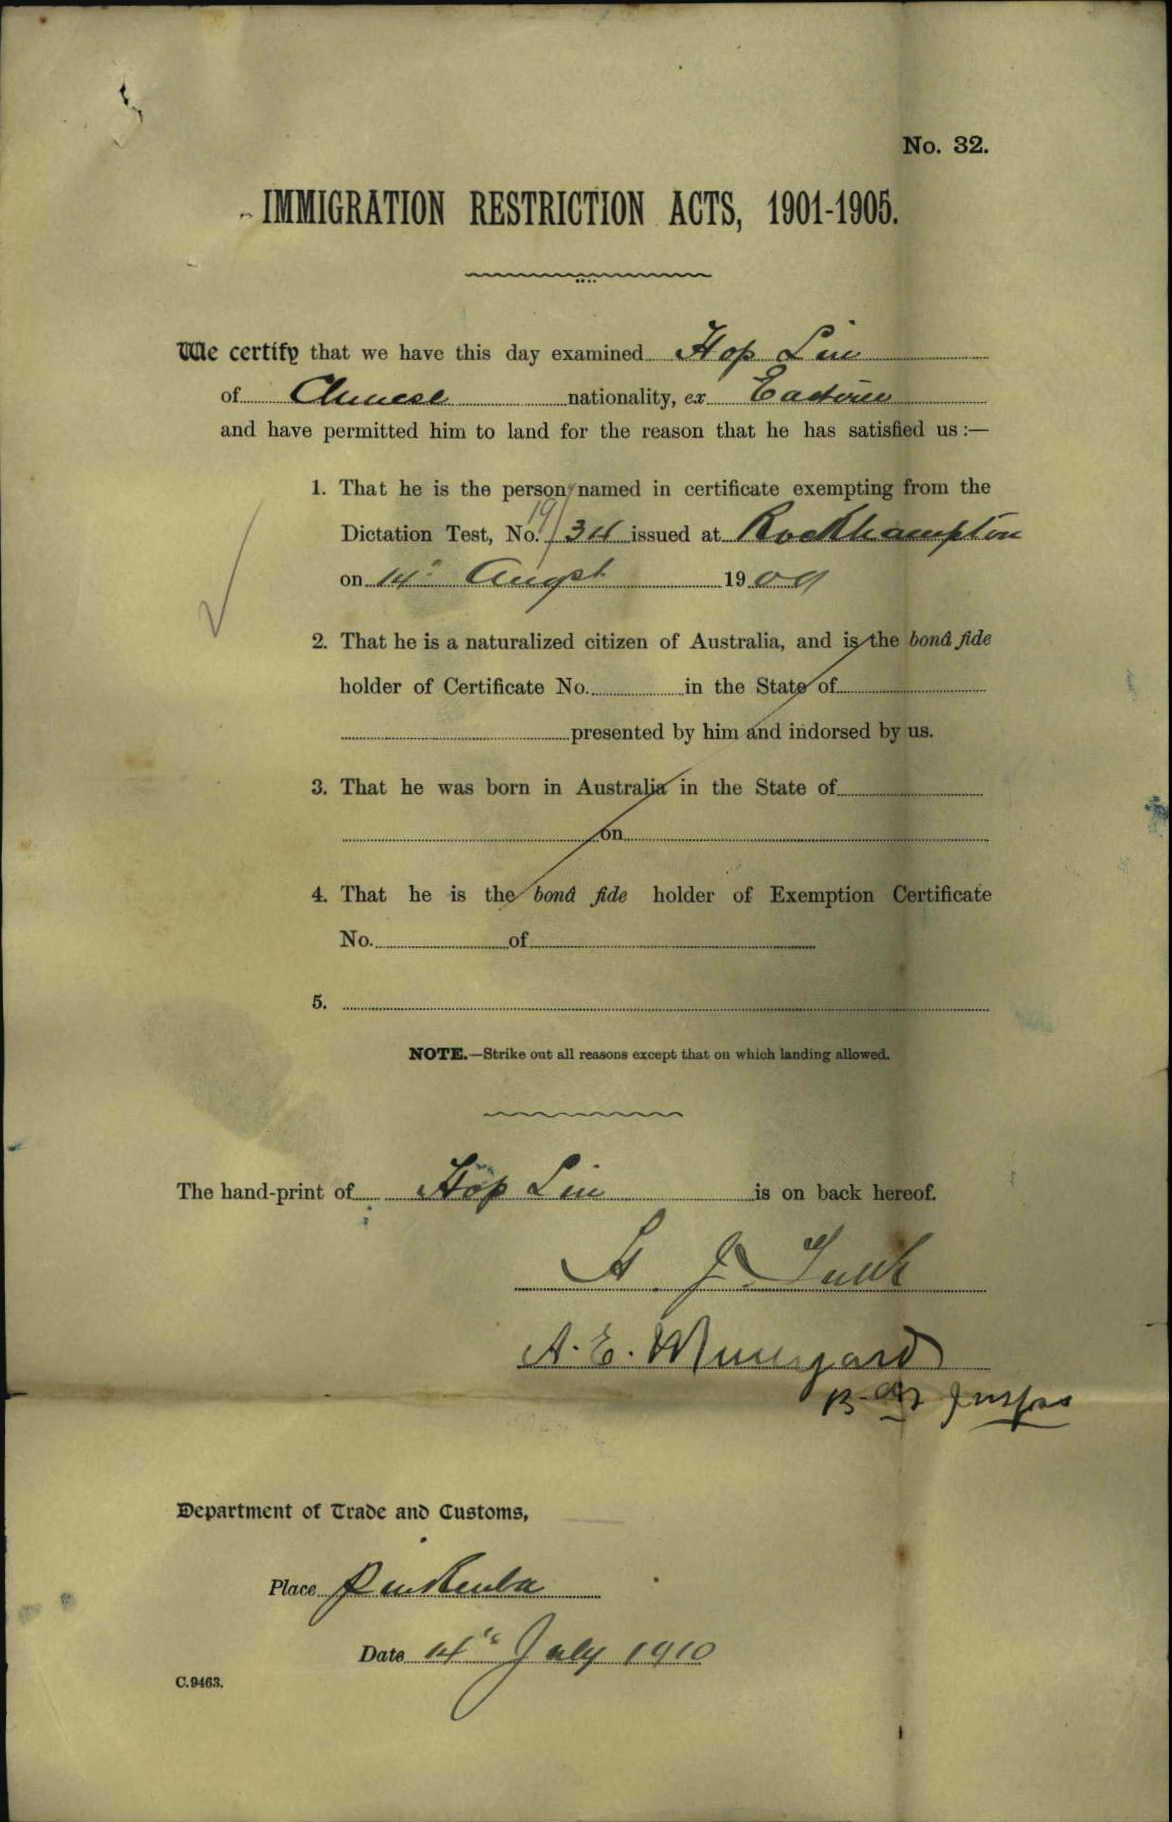 No. 32.
IMMIGRATION RESTRICTION ACTS, 1901-1905.
We certify that we have this day examined Hop Lin
of Chinese nationality, ex Eastern
and have permitted him to land for the reason that he has satisfied us :—
1. That he is the person named in certificate exempting from the
Dictation Test, No. 19/34 issued at Rockhampton
on 14th Augst 1909
2. That he is a naturalized citizen of Australia, and is the bonâ fide
holder of Certificate No. in the State of
presented by him and indorsed by us.
3. That he was born in Australia in the State of
on
4. That he is the bonâ fide holder of Exemption Certificate
No. of
5.
NOTE.—Strike out all reasons except that on which landing allowed.
The hand-print of Hop Lin is on back hereof.
J.
A. E.
Department of Trade and Customs,
Place Pinkenba
Date 14th July 1910
C.9463.